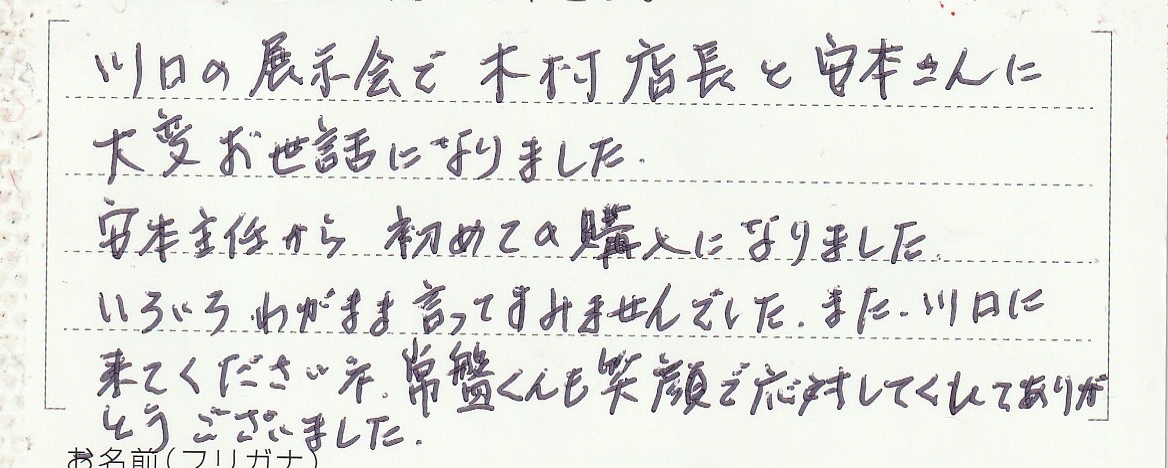 川口の展示会で 木村店長と安本さんに
大変お世話になりました.
安本主任から 初めての購入になりました.
いろいろわがまま言ってすみませんでした. また. 川口に
来てくださいネ. 常盤くんも笑顔で応対してくれてありが
とうございました.
お名前(フリガナ)